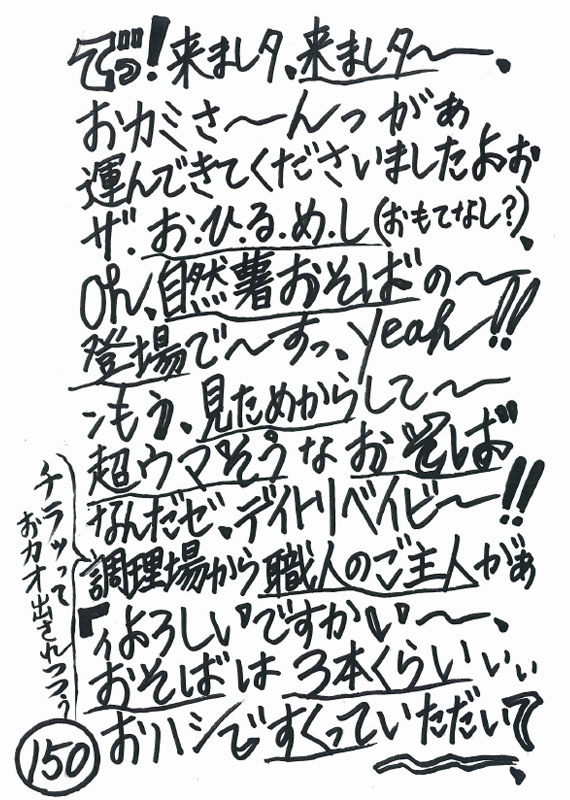 でっ!来ましタ、来ましタ〜ー、
おカミさ〜んっがぁ
運んできてくださいましたよぉ
ザ・お・ひ・る・め・し(おもてなし?)、
Oh、自然薯おそばの〜
登場で〜すっ、yeah!!
ンもう、見ためからして〜
超ウマそうなおそば
なんだゼ、デイトリベイビ〜!!
調理場から職人のご主人がぁ
チラッって
おカオ出されつつぅ
「ィよろしいですかい〜、
おそばは3本くらいいぃぃ
おハシですくっていただいて、
150